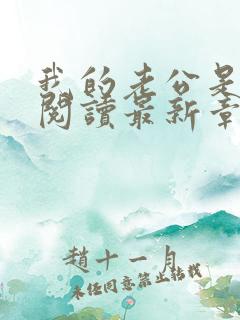 我的老公是
閱讀最新章
趙十一月
未經同意禁止轉載